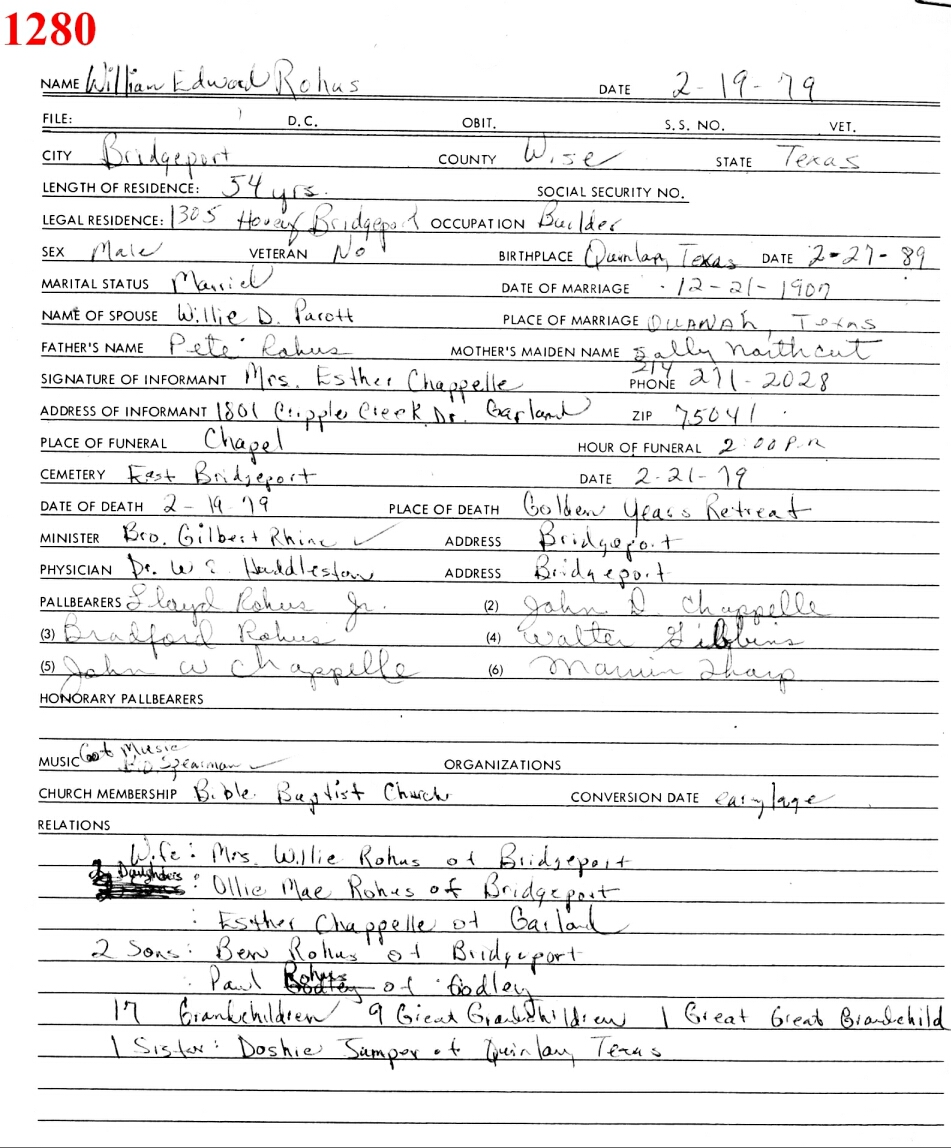 1280
NAME William Edward Rohus DATE 2-19-79
FILE: D.C. OBIT. S.S. NO. VET.
CITY Bridgeport COUNTY Wise STATE Texas
LENGTH OF RESIDENCE: 54 yrs. SOCIAL SECURITY NO.
LEGAL RESIDENCE: 1305 Hovey Bridgeport OCCUPATION Builder
SEX Male VETERAN No BIRTHPLACE Quinlan, Texas DATE 2-27-89
MARITAL STATUS Married DATE OF MARRIAGE 12-21-1907
NAME OF SPOUSE Willie D. Parott PLACE OF MARRIAGE QUANAH, Texas
FATHER'S NAME Pete Rohus MOTHER'S MAIDEN NAME Sally Northcut
SIGNATURE OF INFORMANT Mrs. Esther Chappelle PHONE 214 271-2028
ADDRESS OF INFORMANT 1801 Cripple Creek Dr. Garland ZIP 75041
PLACE OF FUNERAL Chapel HOUR OF FUNERAL 2:00 P.M
CEMETERY East Bridgeport DATE 2-21-79
DATE OF DEATH 2-19-79 PLACE OF DEATH Golden Years Retreat
MINISTER Bro. Gilbert Rhine ✓ ADDRESS Bridgeport
PHYSICIAN Dr. W E Huddleston ADDRESS Bridgeport
PALLBEARERS Lloyd Rohus Jr. (2) John D. Chappelle
(3) Bradford Rohus (4) Walter Gibbins
(5) John W Chappelle (6) Marvin Tharp
HONORARY PALLBEARERS
MUSIC Got Music Spearman ✓ ORGANIZATIONS
CHURCH MEMBERSHIP Bible Baptist Church CONVERSION DATE early age
RELATIONS
Wife: Mrs. Willie Rohus of Bridgeport
2 Daughters: Ollie Mae Rohus of Bridgeport
: Esther Chappelle of Garland
2 Sons: Ben Rohus of Bridgeport
: Paul Rohus of Godley
17 Grandchildren 9 Great Grandchildren 1 Great Great Grandchild
1 Sister: Doshie Jumper of Quinlan, Texas